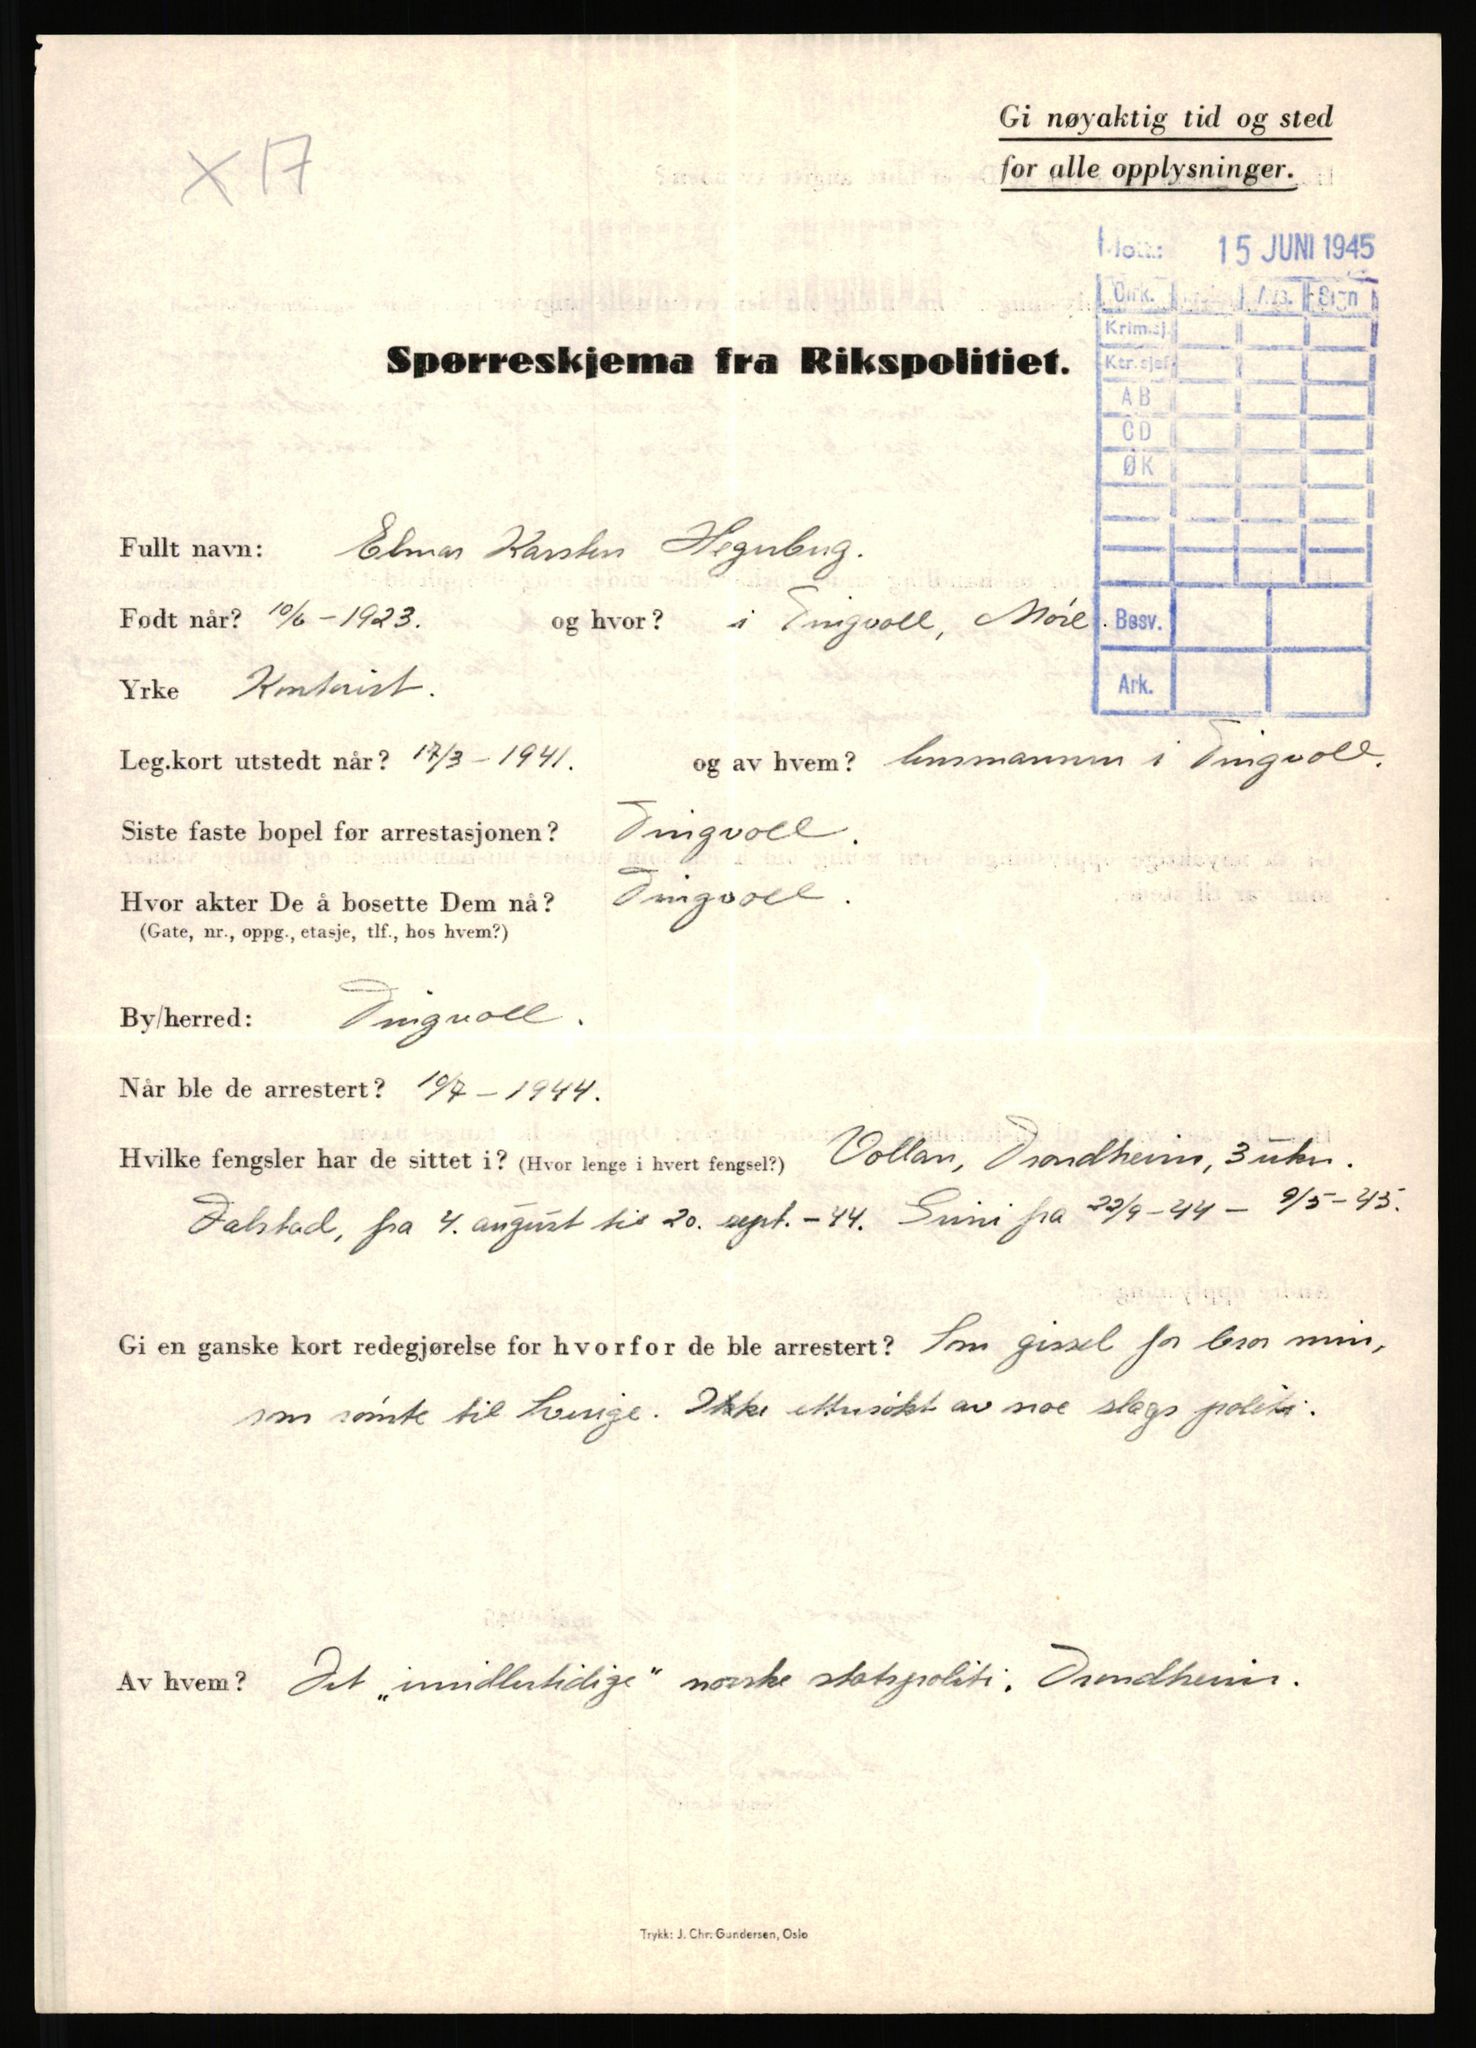 Gi nøyaktig tid og sted
for alle opplysninger.
X 17
Mott.: 15 JUNI 1945
Dirk. Avs. Sign
Krim.sj.
Ktr.sjef
AB
CD
ØK
Besv.
Ark.
Spørreskjema fra Rikspolitiet.
Fullt navn: Elmar Karsten Hegerberg.
Født når? 10/6 - 1923. og hvor? i Tingvoll, Møre.
Yrke Kontorist.
Leg.kort utstedt når? 17/3 - 1941. og av hvem? lensmannen i Tingvoll.
Siste faste bopel før arrestasjonen? Tingvoll.
Hvor akter De å bosette Dem nå? Tingvoll.
(Gate, nr., oppg., etasje, tlf., hos hvem?)
By/herred: Tingvoll.
Når ble de arrestert? 10/7 - 1944.
Hvilke fengsler har de sittet i? (Hvor lenge i hvert fengsel?) Vollan, Trondheim, 3 uker.
Falstad, fra 4. august til 20. sept. - 44. Grini fra 22/9 - 44 - 9/5 - 45.
Gi en ganske kort redegjørelse for hvorfor de ble arrestert? Som gissel for bror min,
som rømte til Sverige. Ikke ettersøkt av noe slags politi.
Av hvem? Det „imidlertidige" norske statspoliti, Trondheim.
Trykk: J. Chr. Gundersen, Oslo